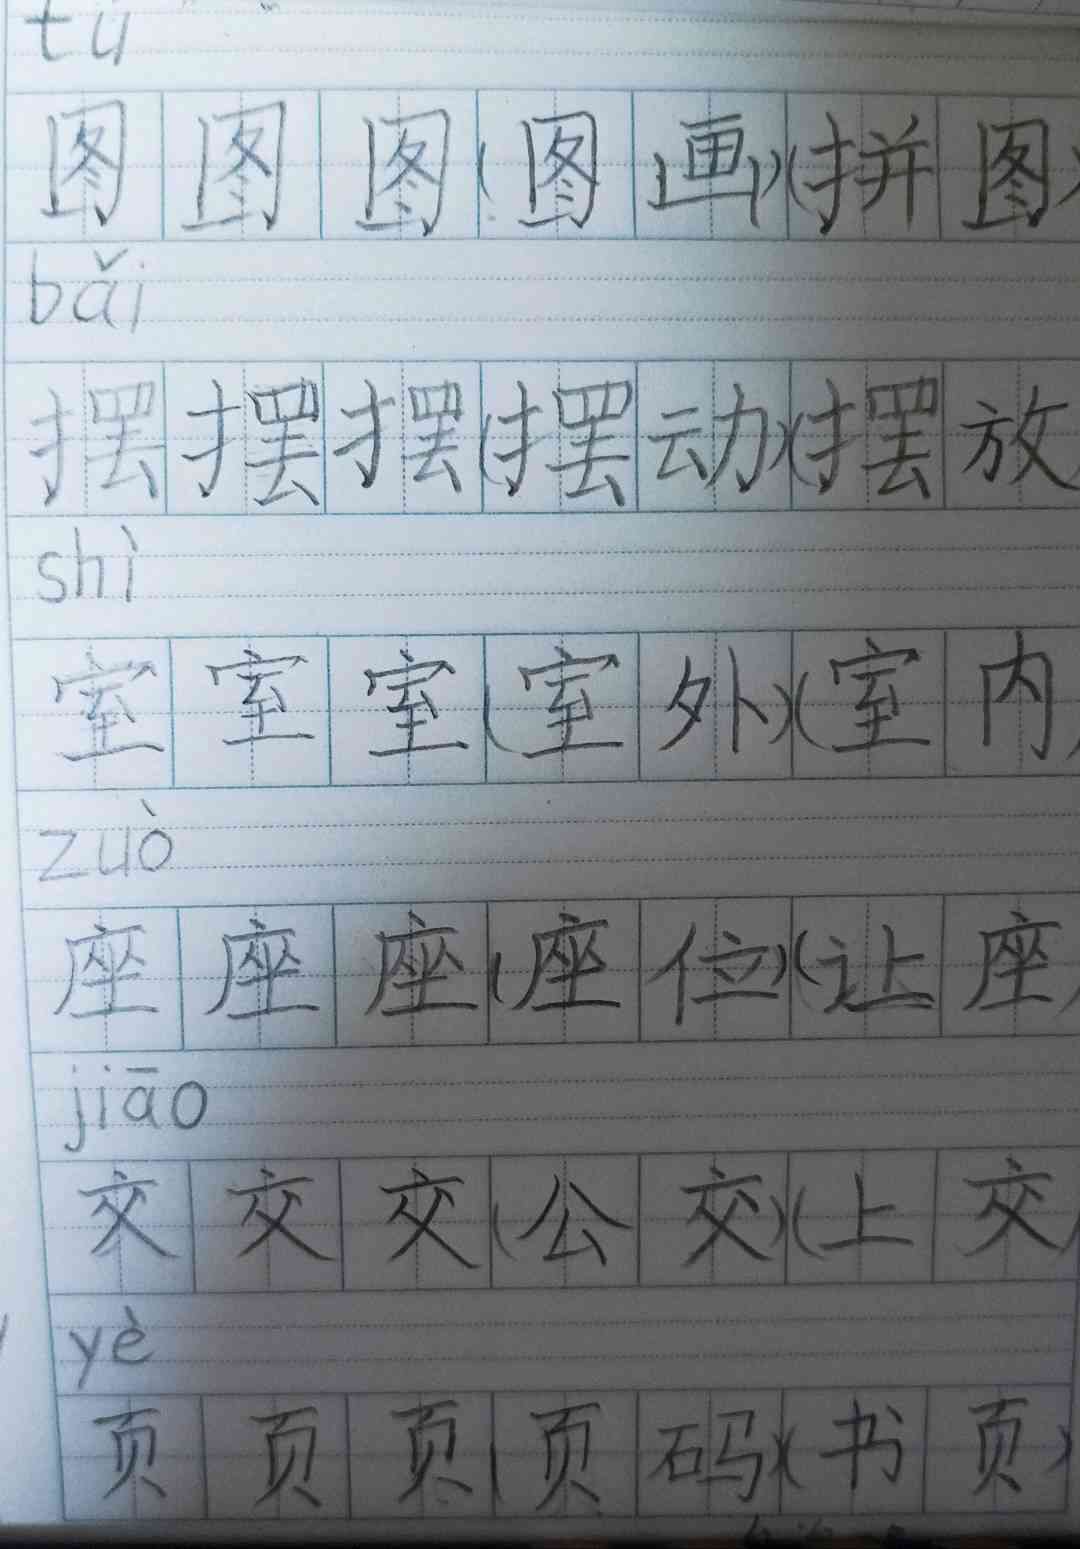 tú
图图图(图画)(拼图)
bǎi
摆摆摆(摆动)(摆放)
shì
室室室(室外)(室内)
zuò
座座座(座位)(让座)
jiāo
交交交(公交)(上交)
yè
页页页(页码)(书页)